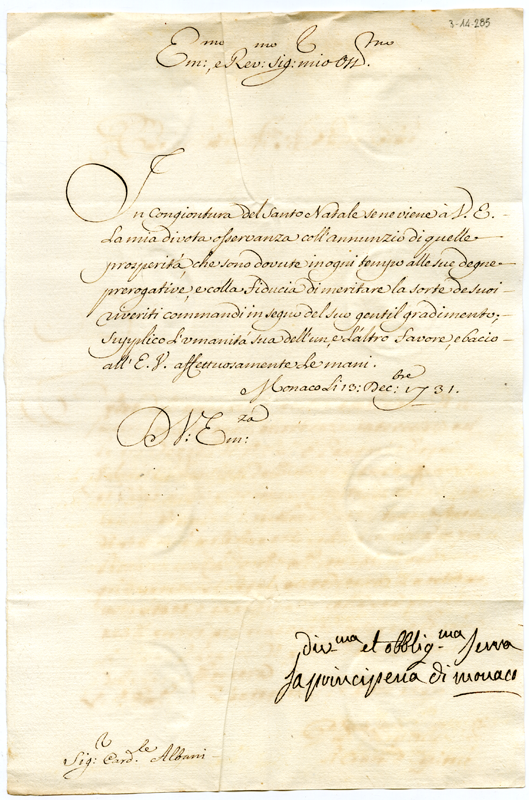 3-14.285
Em:mo e Rev:mo Sig:r mio Oss:mo
In congiontura del Santo Natale sene viene à V. E.
la mia divota osservanza coll'annunzio di quelle
prosperità, che sono dovute in ogni tempo alle sue degne
prerogative, e colla fiducia di meritare la sorte de suoi
riveriti commandi in segno del suo gentil gradimento;
supplico l'vmanità sua dell'un, e l'altro favore, e bacio
all'E. V. affettuosamente le mani.
Monaco li 13: Dec:bre 1731.
D V: Em:za
div.ma et obblig.ma serva
la principessa di monaco
Sig:r Card:le Albani